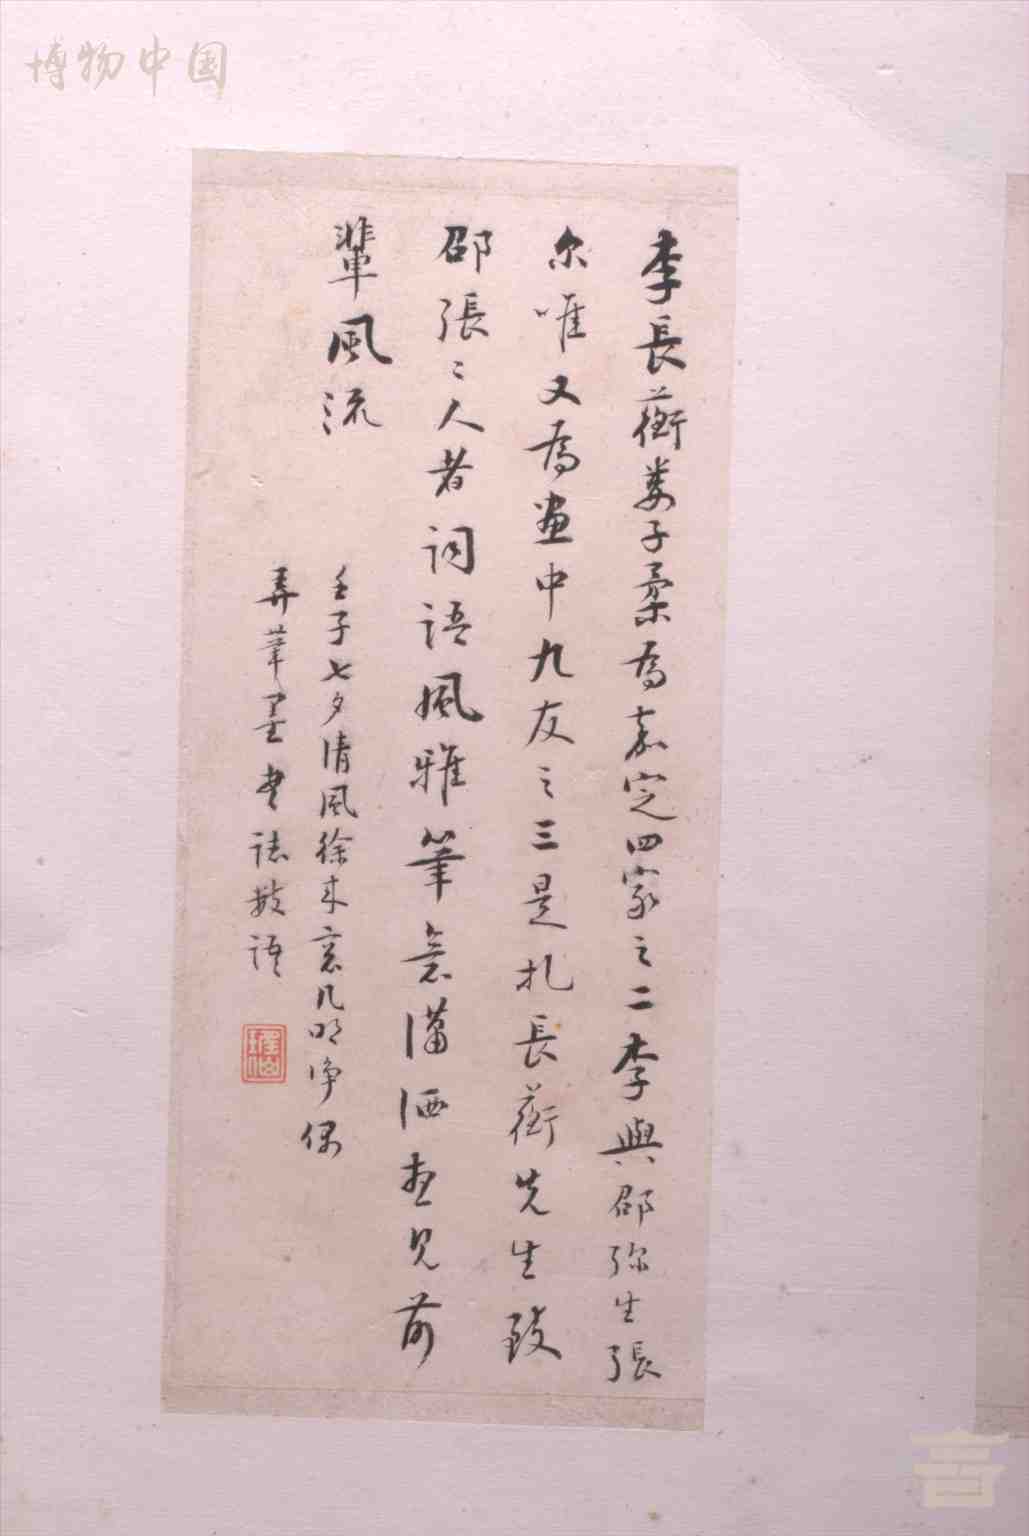 博物中国
李長蘅婁子柔為嘉定四家之二李與邵弥生張
尔唯又為畫中九友之三是札長蘅先生致
邵張二人者詞語風雅筆意瀟洒想見前
輩風流
壬子七夕清風徐來窓几明净偶
弄筆墨書誌數語